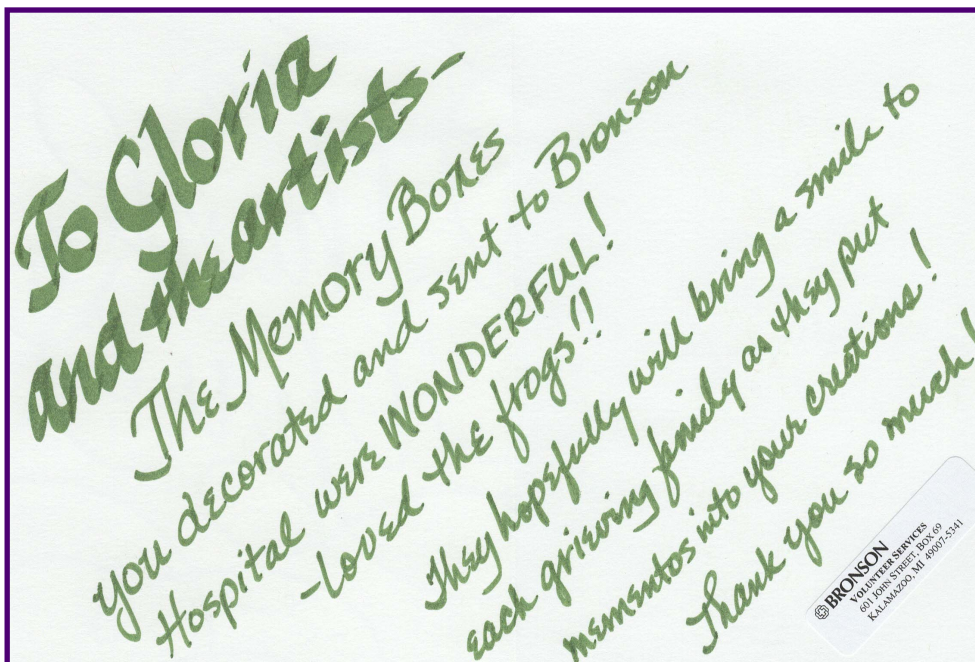 To Gloria
and the artists-
The Memory Boxes
you decorated and sent to Bronson
Hospital were WONDERFUL!
-Loved the frogs!!
They hopefully will bring a smile to
each grieving family as they put
mementos into your creations!
Thank you so much!
BRONSON
VOLUNTEER SERVICES
601 JOHN STREET, BOX 69
KALAMAZOO, MI 49007-5341